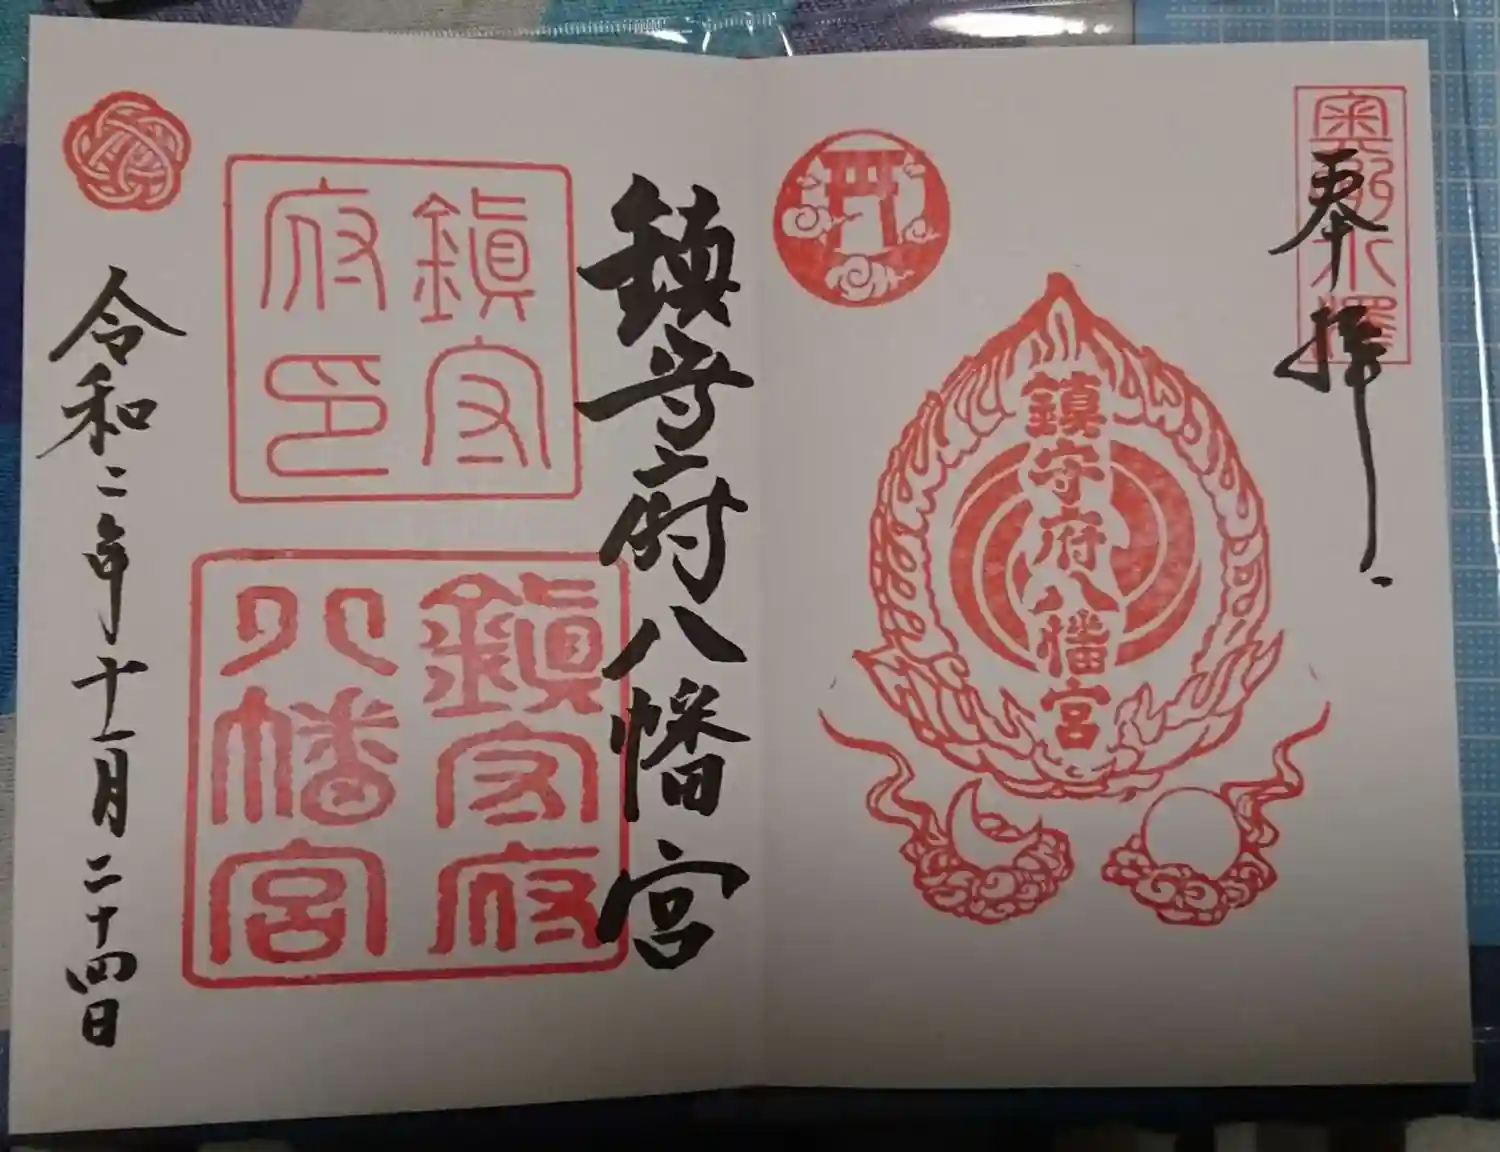 奥州水澤
奉拝
鎮守府八幡宮
鎮守府八幡宮
鎮守府印
鎮守府八幡宮
令和二年十一月二十四日